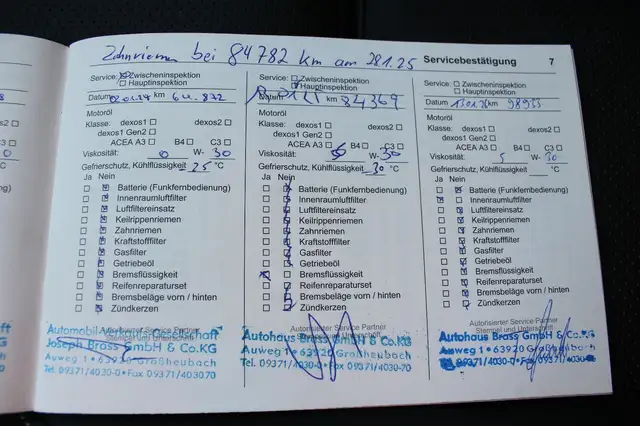 Zahnriemen bei 84782 km am 28.1.25
Servicebestätigung 7
Service: Zwischeninspektion
Hauptinspektion
Datum 02.01.24 km 64.872
Motoröl
Klasse: dexos1 dexos2
dexos1 Gen2
ACEA A3 B4 C3
Viskosität: 0 W- 30
Gefrierschutz, Kühlflüssigkeit -25 °C
Ja Nein
Batterie (Funkfernbedienung)
Innenraumluftfilter
Luftfiltereinsatz
Keilrippenriemen
Zahnriemen
Kraftstofffilter
Gasfilter
Getriebeöl
Bremsflüssigkeit
Reifenreparaturset
Bremsbeläge vorn / hinten
Zündkerzen
Autorisierter Service Partner
Stempel und Unterschrift
Automobil
Gesellschaft
Joseph Brass GmbH & Co.KG
Auweg 1 • 63920 Großheubach
Tel. 09371/4030-0 • Fax 09371/4030-70
Service: Zwischeninspektion
Hauptinspektion
Datum km 84369
Motoröl
Klasse: dexos1 dexos2
dexos1 Gen2
ACEA A3 B4 C3
Viskosität: 5 W- 30
Gefrierschutz, Kühlflüssigkeit -30 °C
Ja Nein
Batterie (Funkfernbedienung)
Innenraumluftfilter
Luftfiltereinsatz
Keilrippenriemen
Zahnriemen
Kraftstofffilter
Gasfilter
Getriebeöl
Bremsflüssigkeit
Reifenreparaturset
Bremsbeläge vorn / hinten
Zündkerzen
Autorisierter Service Partner
Stempel und Unterschrift
Autohaus Brass GmbH & Co.KG
Auweg 1 • 63920 Großheubach
Tel. 09371/4030-0 • Fax 09371/4030-70
Service: Zwischeninspektion
Hauptinspektion
Datum 13.01.26 km 98933
Motoröl
Klasse: dexos1 dexos2
dexos1 Gen2
ACEA A3 B4 C3
Viskosität: 5 W- 30
Gefrierschutz, Kühlflüssigkeit °C
Ja Nein
Batterie (Funkfernbedienung)
Innenraumluftfilter
Luftfiltereinsatz
Keilrippenriemen
Zahnriemen
Kraftstofffilter
Gasfilter
Getriebeöl
Bremsflüssigkeit
Reifenreparaturset
Bremsbeläge vorn / hinten
Zündkerzen
Autorisierter Service Partner
Stempel und Unterschrift
Autohaus Brass GmbH & Co.KG
Auweg 1 • 63920 Großheubach
Tel. 09371/4030-0 • Fax 09371/4030-70